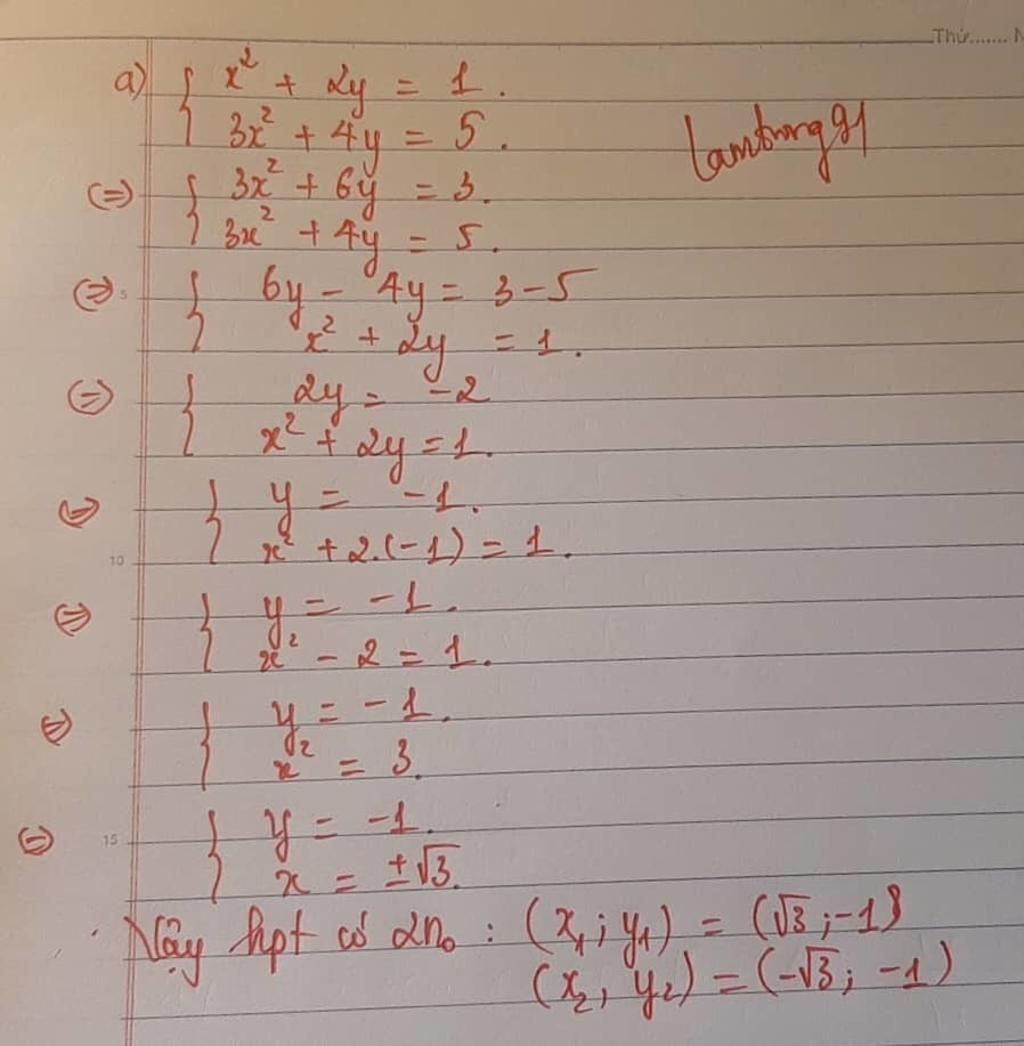 Thứ....... N
a) { x² + 2y = 1.
3x² + 4y = 5.
lamtung91
(=) { 3x² + 6y = 3.
3x² + 4y = 5.
(=) 5 { 6y - 4y = 3-5
x² + 2y = 1.
(=) { 2y = -2
x² + 2y = 1.
(=) { y = -1.
x² + 2.(-1) = 1.
10
(=) { y = -1.
x² - 2 = 1.
(=) { y = -1.
x² = 3.
(=) 15 { y = -1.
x = ±√3.
Vậy hpt có 2n₀ : (x₁; y₁) = (√3; -1)
(x₂, y₂) = (-√3; -1)